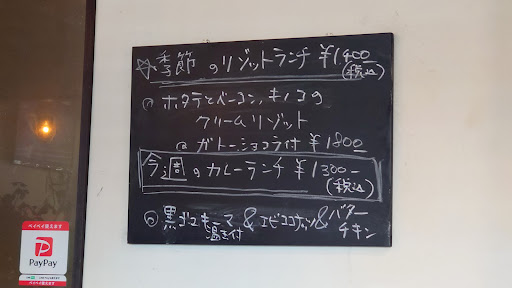 ☆季節のリゾットランチ ¥1400-
(税込)
◎ ホタテとベーコン、キノコの
クリームリゾット
@ ガトーショコラ付 ¥1800
今週のカレーランチ ¥1300-
(税込)
◎ 黒ゴマキーマ & エビココナッツ & バター
チキン
ペイペイ使えます
PayPay